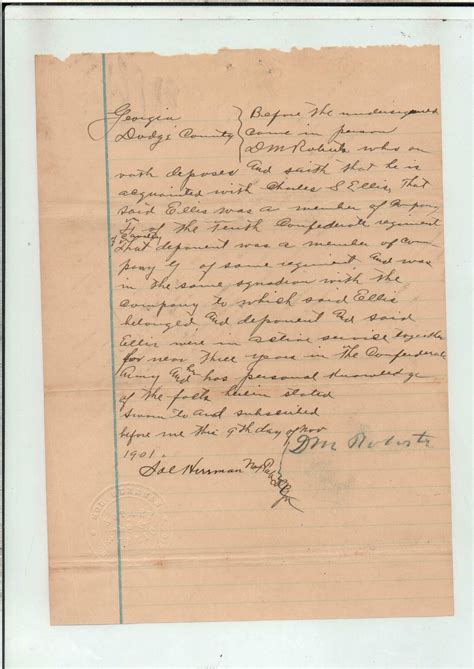 Georgia
Dodge County
Before the undersigned
come in person
D M Roberts who on
oath deposes and saith that he is
acquainted with Charles S Ellis, That
said Ellis was a member of Company
of the Tenth Confederate regiment
Cavalry
That deponent was a member of Com
pany G of same regiment and was
in the same squadron with the
company to which said Ellis
belonged and deponent and said
Ellis were in active service together
for near three years in the Confederate
Army and he has personal knowledge
of the facts herein stated
Sworn to and subscribed
before me this 9th day of Nov
1901.
D M Roberts
Joe Herrman